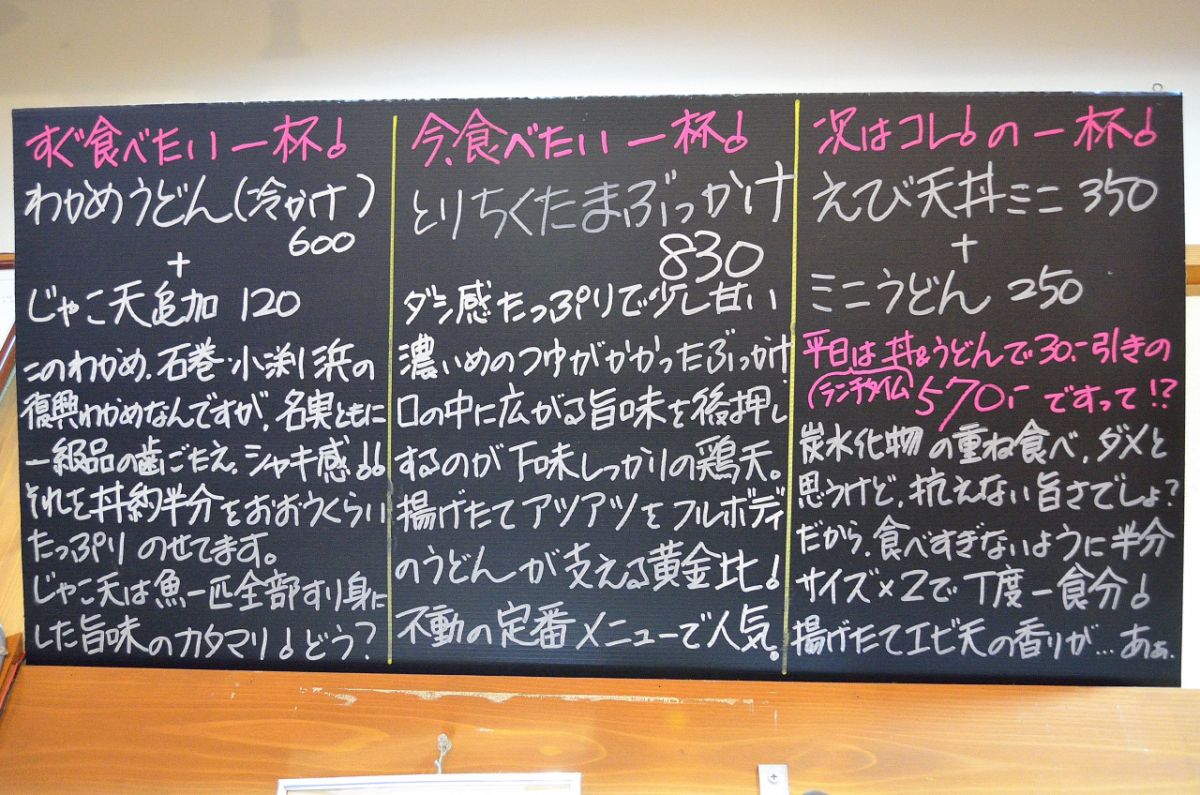 すぐ食べたい一杯!
わかめうどん(冷かけ)
600
+
じゃこ天追加 120
このわかめ、石巻・小渕浜の
復興わかめなんですが、名実ともに
一級品の歯ごたえ、シャキ感!!
それを丼約半分をおおうくらい
たっぷりのせてます。
じゃこ天は魚一匹全部すり身に
した旨味のカタマリ!どう?
今、食べたい一杯!
とりちくたまぶっかけ
830
ダシ感たっぷりで少し甘い
濃いめのつゆがかかったぶっかけ
口の中に広がる旨味を後押し
するのが下味しっかりの鶏天。
揚げたてアツアツをフルボディ
のうどんが支える黄金比!
不動の定番メニューで人気。
次はコレ!の一杯!
えび天丼ミニ 350
+
ミニうどん 250
平日は丼&うどんで30.-引きの
(ランチタイム 570.- ですって!?
炭水化物の重ね食べ、ダメと
思うけど、抗えない旨さでしょ?
だから、食べすぎないように半分
サイズ×2で丁度一食分!
揚げたてエビ天の香りが…あぁ.